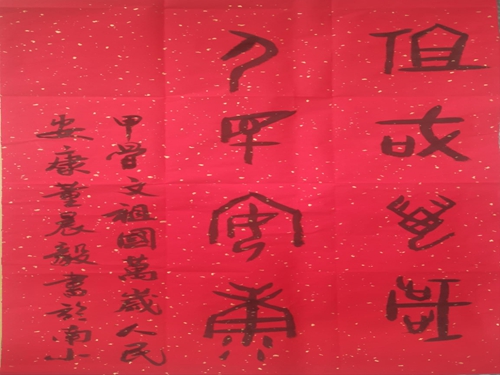 祖國萬歲
人民安康
甲骨文祖國萬歲人民
安康董晨毅書於南山